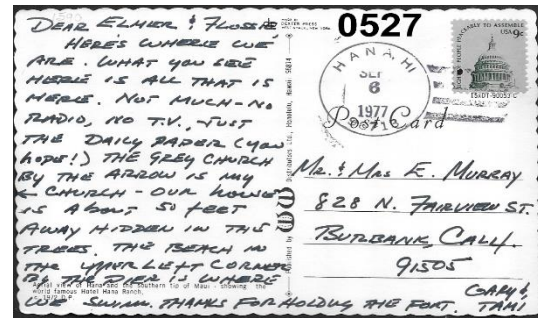 0527
DEAR ELMER & FLOSSIE
HERE'S WHERE WE
ARE. WHAT YOU SEE
HERE IS ALL THAT IS
HERE. NOT MUCH - NO
RADIO, NO T.V., JUST
THE DAILY PAPER (YOU
HOPE!) THE GREY CHURCH
BY THE ARROW IS MY
← CHURCH - OUR HOUSE
IS ABOUT 50 FEET
AWAY HIDDEN IN THE
TREES. THE BEACH IN
THE UPPER LEFT CORNER
BY THE PIER IS WHERE
WE SWIM. THANKS FOR HOLDING THE FORT.
GARY &
TAMI
Aerial view of Hana and the southern tip of Maui - showing the
world famous Hotel Hana Ranch.
c. 1972 D.P.
DEXTER PRESS
Distributors Ltd., Honolulu, Hawaii 96814
Published by
HANA, HI
SEP
6
1977
96713
Post Card
TO ASSEMBLE
USA 9c
MR. & MRS E. MURRAY
828 N. FAIRVIEW ST.
BURBANK, CALIF.
91505